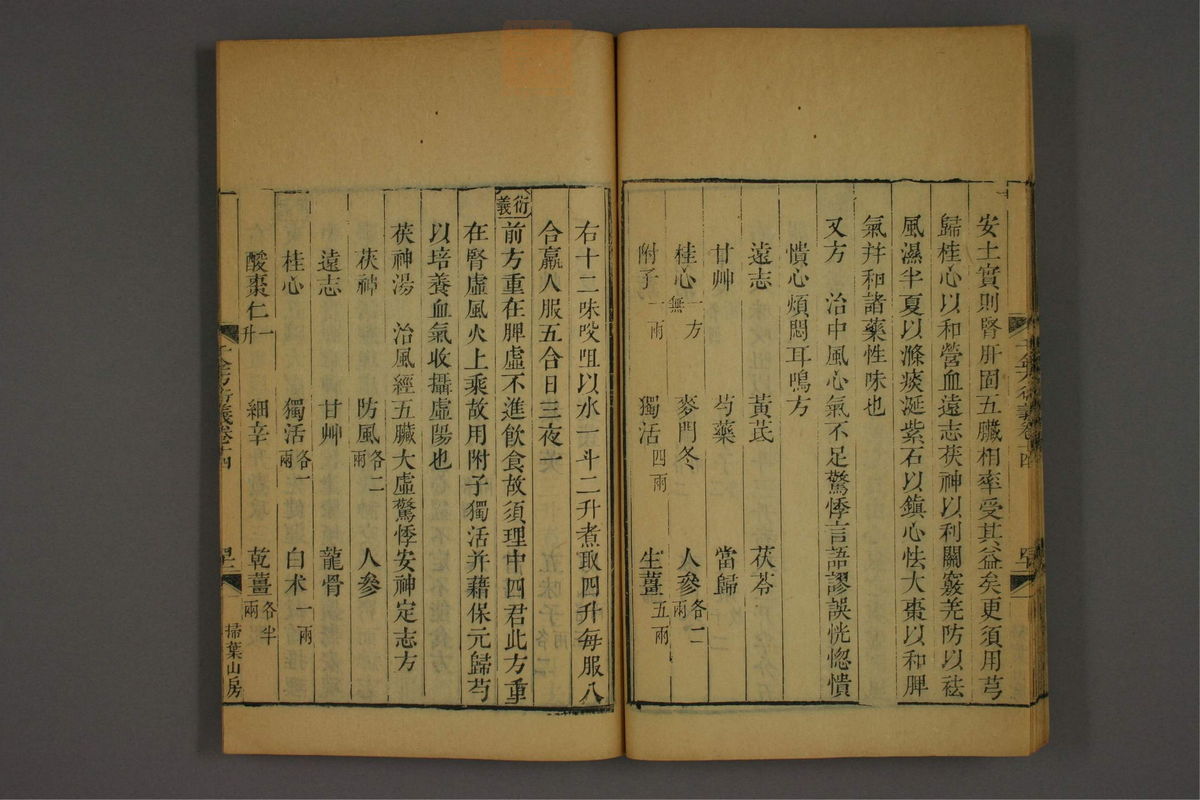 安土實則腎肝固五臟相率受其益矣更須用芎
歸桂心以和營血遠志茯神以利關竅羌防以祛
風濕半夏以滌痰涎紫石以鎮心怯大棗以和脾
氣幷和諸藥性味也
又方　治中風心氣不足驚悸言語謬誤恍惚憒
憒心煩悶耳鳴方
遠志　黃芪　茯苓
甘艸　芍藥　當歸
桂心一方無　麥門冬　人參各二兩
附子一兩　獨活四兩　生薑五兩
右十二味㕮咀以水一斗二升煮取四升每服八
合羸人服五合日三夜一
衍義
前方重在脾虛不進飲食故須理中四君此方重
在腎虛風火上乘故用附子獨活并藉保元歸芍
以培養血氣收攝虛陽也
茯神湯　治風經五臟大虛驚悸安神定志方
茯神　防風各二兩　人參
遠志　甘艸　龍骨
桂心　獨活各一兩　白术一兩
酸棗仁一升　細辛　乾薑各半兩
千金方衍義卷十四
掃葉山房